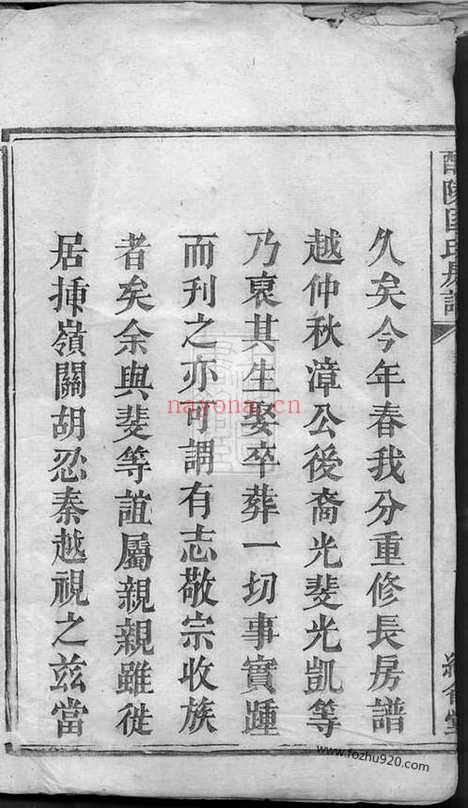 久矣今年春我分重修長房譜
越仲秋漳公後裔光斐光凱等
乃裒其生娶卒葬一切事實踵
而刊之亦可謂有志敬宗收族
者矣余與斐等誼屬親親雖徙
居揷嶺關胡忍秦越視之兹當
nayona.cn
www.fozhu920.com